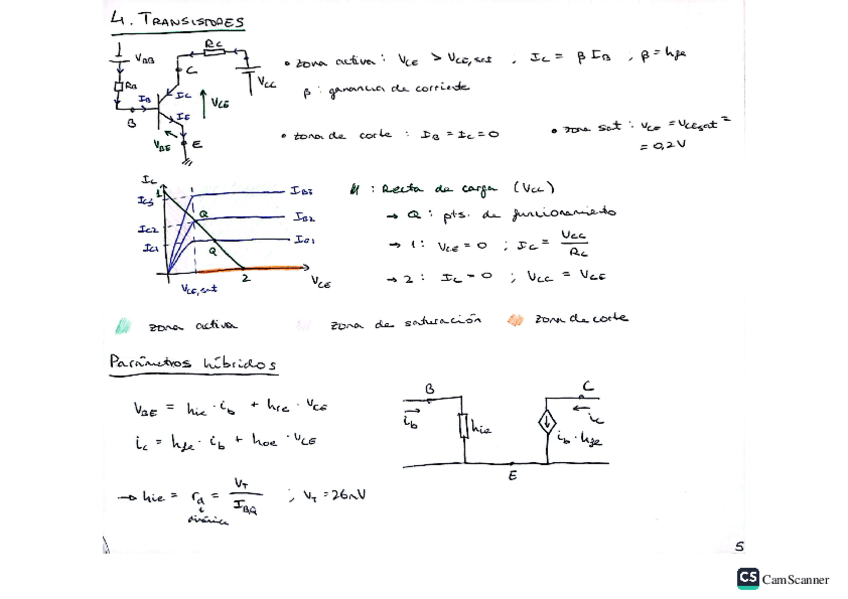 4. TRANSISTORES
VBB
RC
C
VCC
RB
IB
IC
IE
VCE
B
VBE
E
• zona activa: VCE > VCE,sat ; IC = β IB , β = hfe
β: ganancia de corriente
• zona de corte : IB = IC = 0
• zona sat : VCE = VCEsat = = 0,2 V
IC
1
IC3
IC2
IC1
IB3
IB2
IB1
Q
Q
2
VCE,sat
VCE
: Recta de carga (VCC)
→ Q : pts. de funcionamiento
→ 1: VCE = 0 ; IC = VCC / RC
→ 2: IC = 0 ; VCC = VCE
zona activa
zona de saturación
zona de corte
Parámetros híbridos
VBE = hie · ib + hre · VCE
ic = hfe · ib + hoe · VCE
→ hie = rd = VT / IBQ ; VT = 26mV
dinámica
B
ib
hie
C
ic
ib · hfe
E
5
CS CamScanner